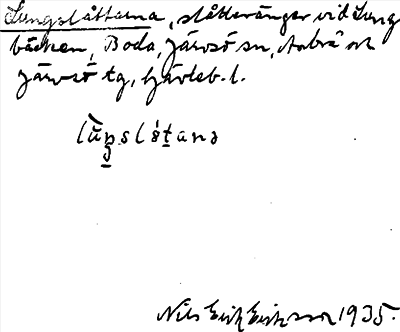 Lungslåttarna, slåtteränger vid Lung
bäcken, Boda, Järvsö sn, Arbrå och
Järvsö tg, Gävleb. l.
Nils Erik Eriksson 1935.